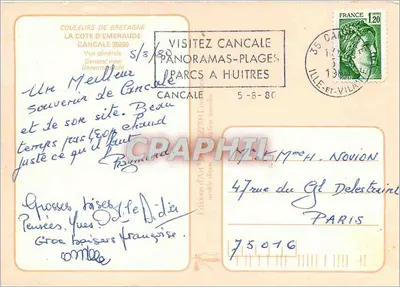 COULEURS DE BRETAGNE
LA COTE D'EMERAUDE
CANCALE 35260
Vue générale
General view
5/8/80
VISITEZ CANCALE
PANORAMAS-PLAGES
PARCS A HUITRES
CANCALE 5-8-80
FRANCE
1,20
35 CANCALE
ILLE-et-VILAINE
Un Meilleur
souvenir de Cancale
et de son site. Beau
temps pas trop chaud
juste ce qu'il faut
Raymond
Grosses bises
Pensées. Yves Odile Didier
Gros baisers françoise.
CPAPHIL
M. et Mme H. NOVION
47 rue du Gl Delestraint
PARIS
75016